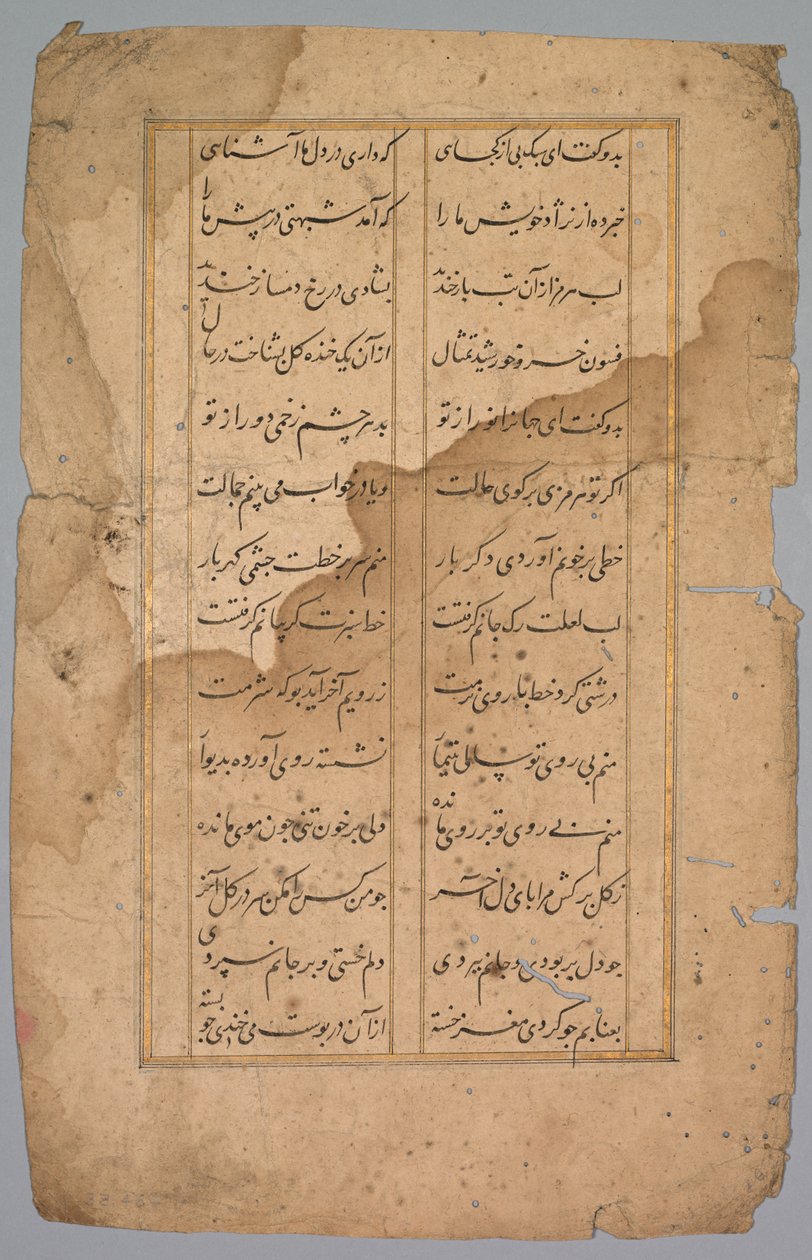 بدو گفت ای سبک پی از کجایی که داری در دل ما آشنایی
خبر ده از نژاد خویش ما را که آمد شبهتی در پیش ما را
لب هرمز از آن تب باز خندید بشادی در رخ دمساز خندید
فسون خسرو خورشید تمثال از آن یک خنده گل بشناخت در حال
بدو گفت ای جهانرا نور از تو بد هر چشم زخمی دور از تو
اگر تو هرمزی برگوی حالت و یا در خواب می بینم جمالت
خطی بر خونم آوردی دگر بار منم سر بر خطت چشمی گهربار
لب لعلت رگ جانم گرفتست خط سبزت گریبانم گرفتست
درشتی کرد خط با روی نرمت ز رویم آخر آید بو که شرمت
منم بی روی تو سالی نتیمار نشسته روی آورده بدیوار
منم بی روی تو بر روی مانده دلی بر خون تنی جون موی مانده
ز گل برکش مرا بای دل آخر جو من کس را مکن سر در گل آخر
جو دل بربودی و جانم ببردی دلم خستی و بر جانم سپردی
بعنابم جو کردی مغز خسته از آن در بوست می خندی جو بسته